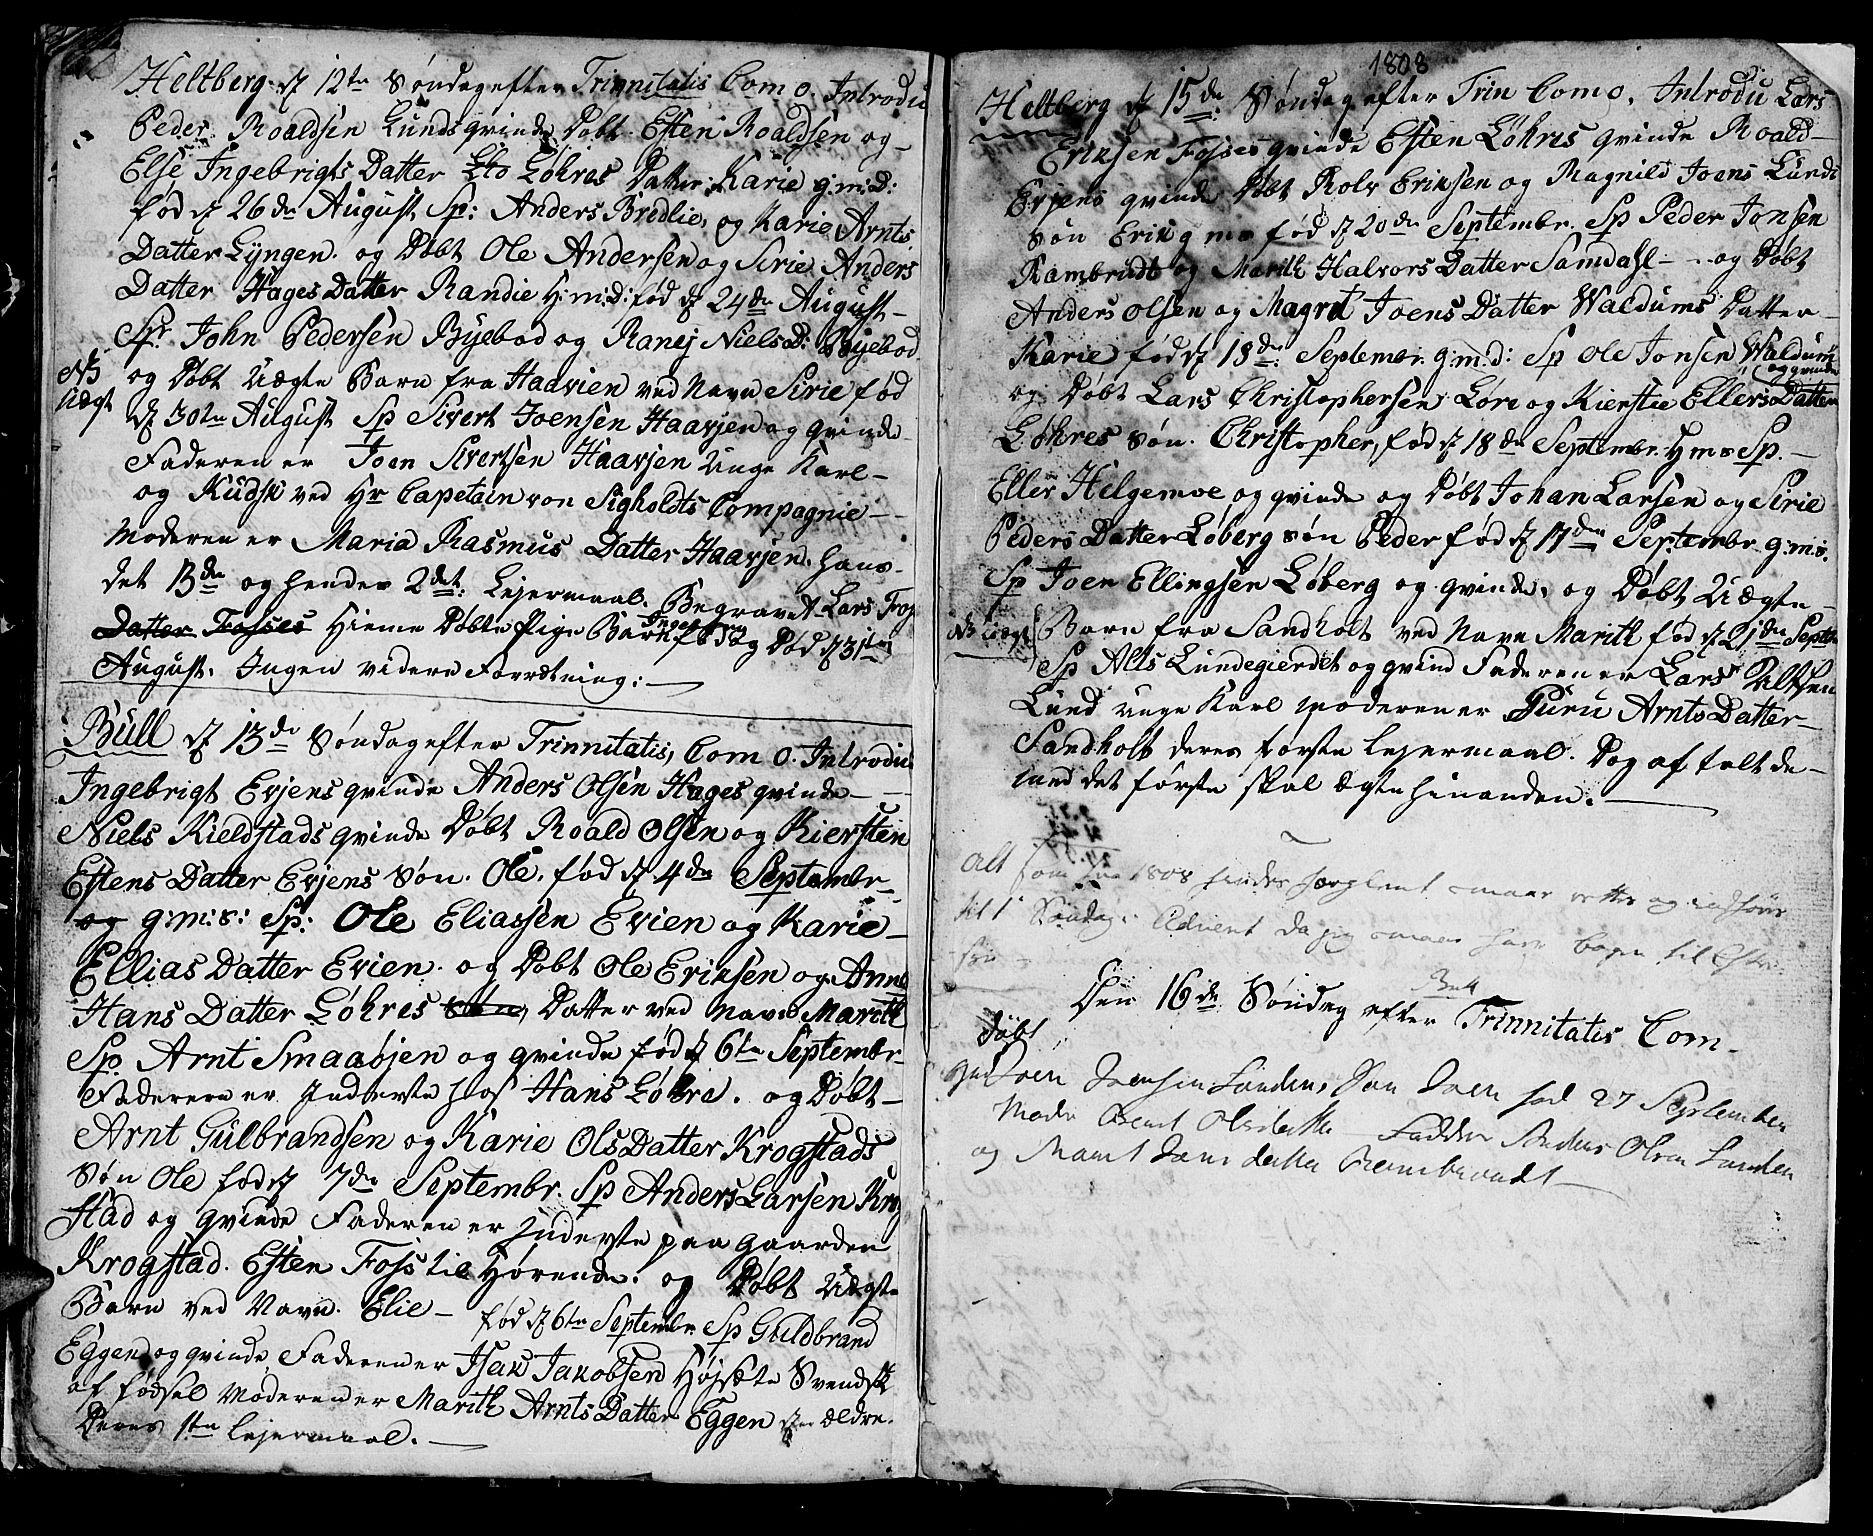 Heltberg d 12te Søndag efter Trinnitatis Com 0. Introdu
Peder Roaldsen Lunds qvinde Døbt Esten Roaldsen og
Else Ingebrigts Datter Løhres Datter: Karie g:m:d:
fød d 26de August Sp: Anders Bredlie, og Karie Arnts
Datter Lyngen. og Døbt Ole Andersen og Sirie Anders
Datter Hages Datter Randie H:m:d: fød d 24de August
Sp. John Pedersen Byebod og Ranej Niels D: Byebod
NB og Døbt Uægte Barn fra Haavien ved Navn Sirie fød
Uægt d 30te August Sp Sivert Joensen Haavjen og qvinde
Faderen er Joen Sivertsen Haavjen Unge Karl
og Kudsk ved Hr Capetain von Sigholdts Compagnie
Moderen er Maria Rasmus Datter Haavjen. hans
det 13de og hendes 2det: Lejermaal. Begravet Lars Fos
Datter Fosses Hieme Døbte Pige Barn Ingeborg fød og Død d 31te
August. Ingen videre Forretning:
Bull d 13de Søndag efter Trinnitatis, Com 0. Introdu
Ingebrigt Evjens qvinde Anders Olsen Hages qvinde
Niels Kieldstads qvinde Døbt Roald Olsen og Kiersten
Estens Datter Evjens Søn. Ole. fød d 4de Septembr
og g:m:s: Sp: Ole Eliassen Evien og Karie
Ellias Datter Evien. og Døbt Ole Eriksen og Anne
Hans Datter Løhres Datter ved Navn Marith
Sp. Arnt Smaaøjen og qvinde fød d 6te Septembr
Faderen er Inderste hos Hans Løhre. og Døbt
Arnt Gulbrandsen og Karie Ols Datter Krogstads
Søn Ole fød d 7de Septembr. Sp Anders Larsen Krog
stad og qvinde Faderen er Inderste paa Gaarden
Krogstad. Esten Foss til Hørende. og Døbt Uægte
Barn ved Navn. Elie fød d 6te Septembr Sp Guldbrand
Eggen og qvinde Faderen er Isak Jakobsen Højsæte Svendsk
af fødsel Moderen er Marith Arnts Datter Eggen ældre.
Deres 1ste Lejermaal.
1808
Heltberg d 15de Søndag efter Trin Com 0. Introdu Lars
Eriksen Fosses qvinde Esten Løhres qvinde Roald
Evjens qvinde Døbt Rolv Eriksen og Magnild Joens Lunds
Søn Erik g m s fød d 20de Septembr. Sp Peder Jonsen
Rambradt og Marith Halvors Datter Samdahl og Døbt
Anders Olsen og Magret Joens Datter Waldums Datter
Karie fød d 18de Septembr. g:m:d: Sp Ole Jonsen Waldum
og qvinde
og Døbt Lars Christophersen Løre og Kierstie Ellers Datter
Løhres Søn. Christopher, fød d 18de Septembr. H m s Sp.
Eller Helgemoe og qvinde og Døbt Johan Larsen og Sirie
Peders Datter Løberg Søn Peder fød d 17de Septembr g:m:s.
Sp Joen Ellingsen Løberg og qvinde. og Døbt Uægte
NB Uægt Barn fra Sandholt ved Navn Marith fød d 21de Septbr
Sp Alts Lundegierdet og qvind Faderen er Lars Altsen
Lund unge Karl Moderen er Guru Arnts Datter
Sandholt deres første Lejermaal. Dog af talt de
med det første skal ægte hinanden.
Alt som for 1808 findes
til 1 Søndag i Advent da jeg maae have bogen til
Bull
Den 16de Søndag efter Trinnitatis Com
Døbt
Joen Joensen Sundens Søn Joen fød 27 September
Moder Berit Olsdatter Faddere Anders Olsen Sunden
og Marit Jons datter Rambraadt